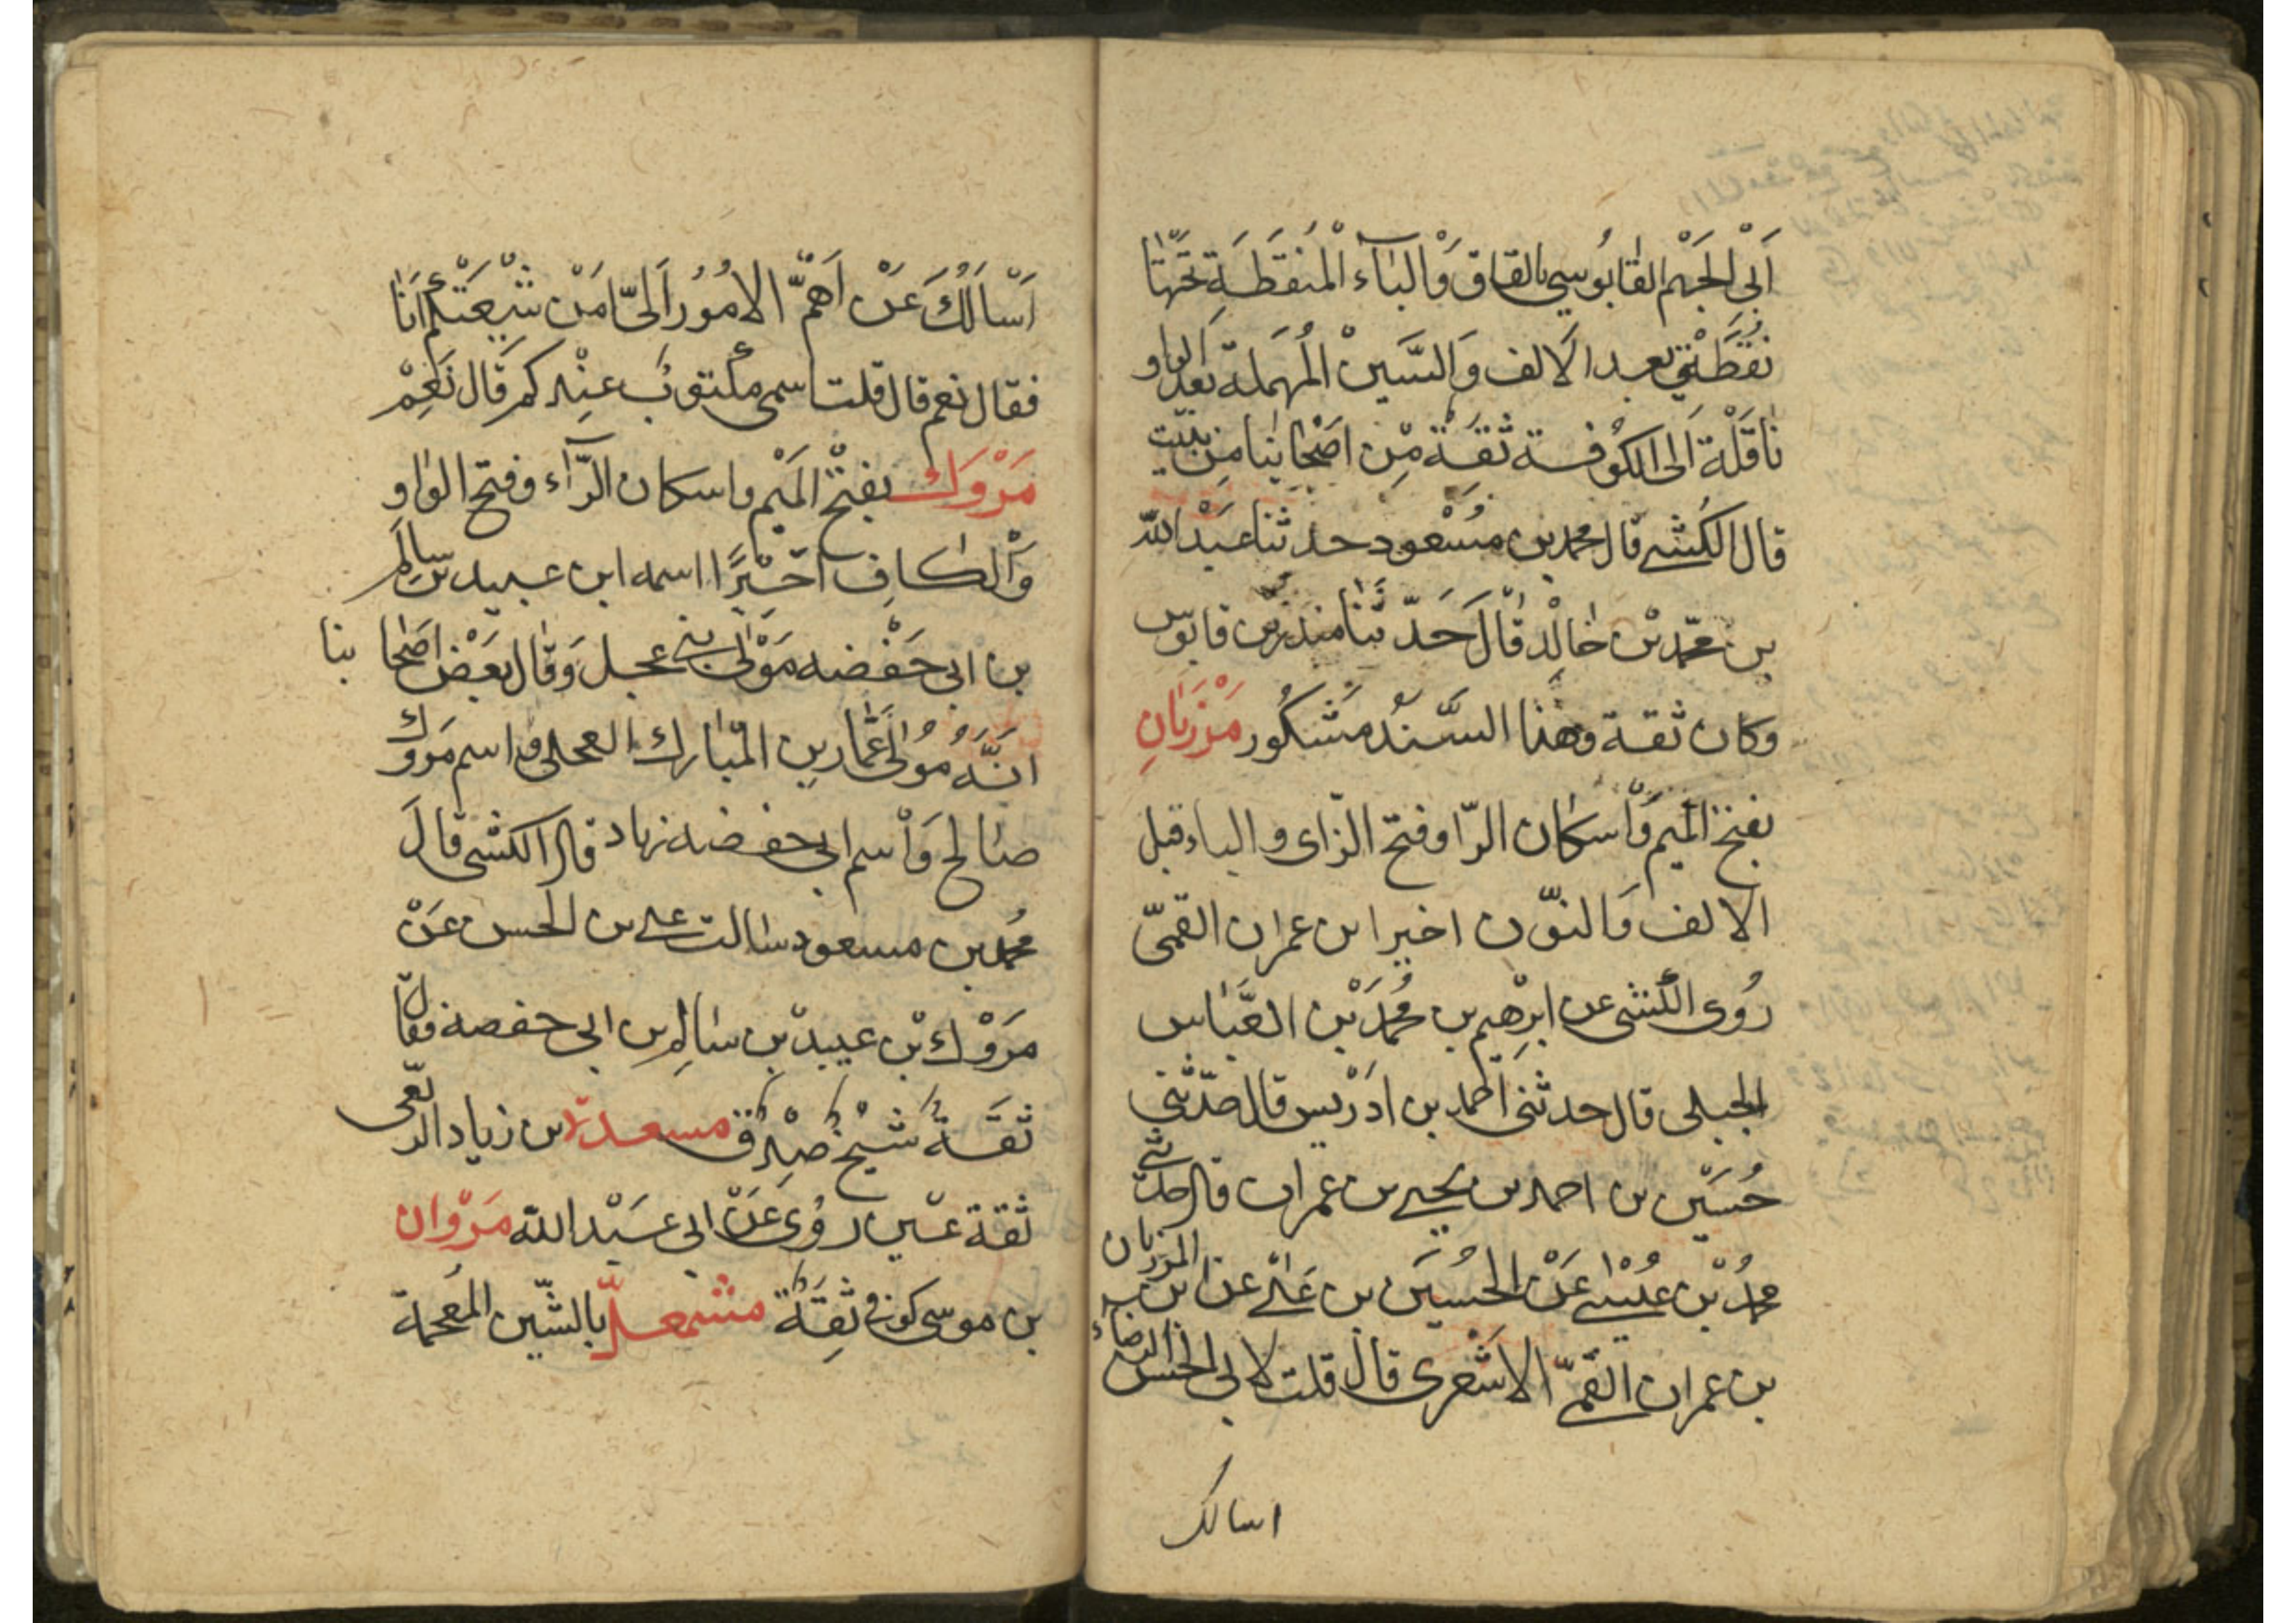 اَبِى الجَهْم القابُوسي بالقاف وَالبَاء المُنقَطَةِ تحتَها
نُقطَتَين بعد الالف وَالسّين المُهمَلة بَعد الواو
نَاقَلة اَلى الكُوفة ثقَة مِن اصْحابِنا مِن بَيت
قال الكشى قال محمد بن مَسْعود حدثنا عَبْد الله
بن محمّد بْن خالِد قَالَ حَدّثَنا منذر بْن قابوس
وكان ثقة وهذا السَّنَدُ مَشكُور مَرْزَبانِ
بفتح المَيم وَاسكان الرّا وفتح الزاى والباء قبل
الالف وَالنوّن اخيرا بن عمران القمىّ
رُوى الكشى عن ابرهيم بن مُحمَّد بْن العَبّاس
الجبلى قال حدثنى اَحمد بن ادَرْيس قال حدّثنى
حُسَيْن بن احمد بن يحيى بن عمران قال حدثنى
محمدُ بْن عيْسى عَن الحُسَين بن عَلى عن المرزبان
بن عمران القمىّ الاشعرى قال قلت لابى الحسن الرضاء
اسالك
اَسْاَلُكَ عَنْ اَهمّ الامُوُر اَلىّ امَنْ شيْعَتكم اَنَا
فقال نعم قال قلت اسمى مكتوب عنِدكم قَال نَعِمْ
مَرْوَك بفتح المَيْم واسكان الرّآء وفتح الواو
وَالكافِ اخَيْرًا اسمه ابن عبيد بن سالِم
بن ابى حَفْضه مَوْلى بنى عجل وَقال بَعَض اصحابنا
انَّهُ مُولَى عَمّار بن المُبارك العجلى واسم مَروك
صَالح وَاسم ابى حفضه زياد قال الكشى قالَ
مُحمد بن مسعود سالت على بن الحسن عَنْ
مَرْوك بْن عبيد بن سالم بن ابى حفصة فقال
ثقَةُ شَيْخُ صِدُق مسعدة بن زياد الربعى
ثقة عَين رَوُى عَنْ ابى عَبْد الله مَرْوان
بن موسى كوفى ثقَةُ مشمعلّ بالشّين المُعجمة